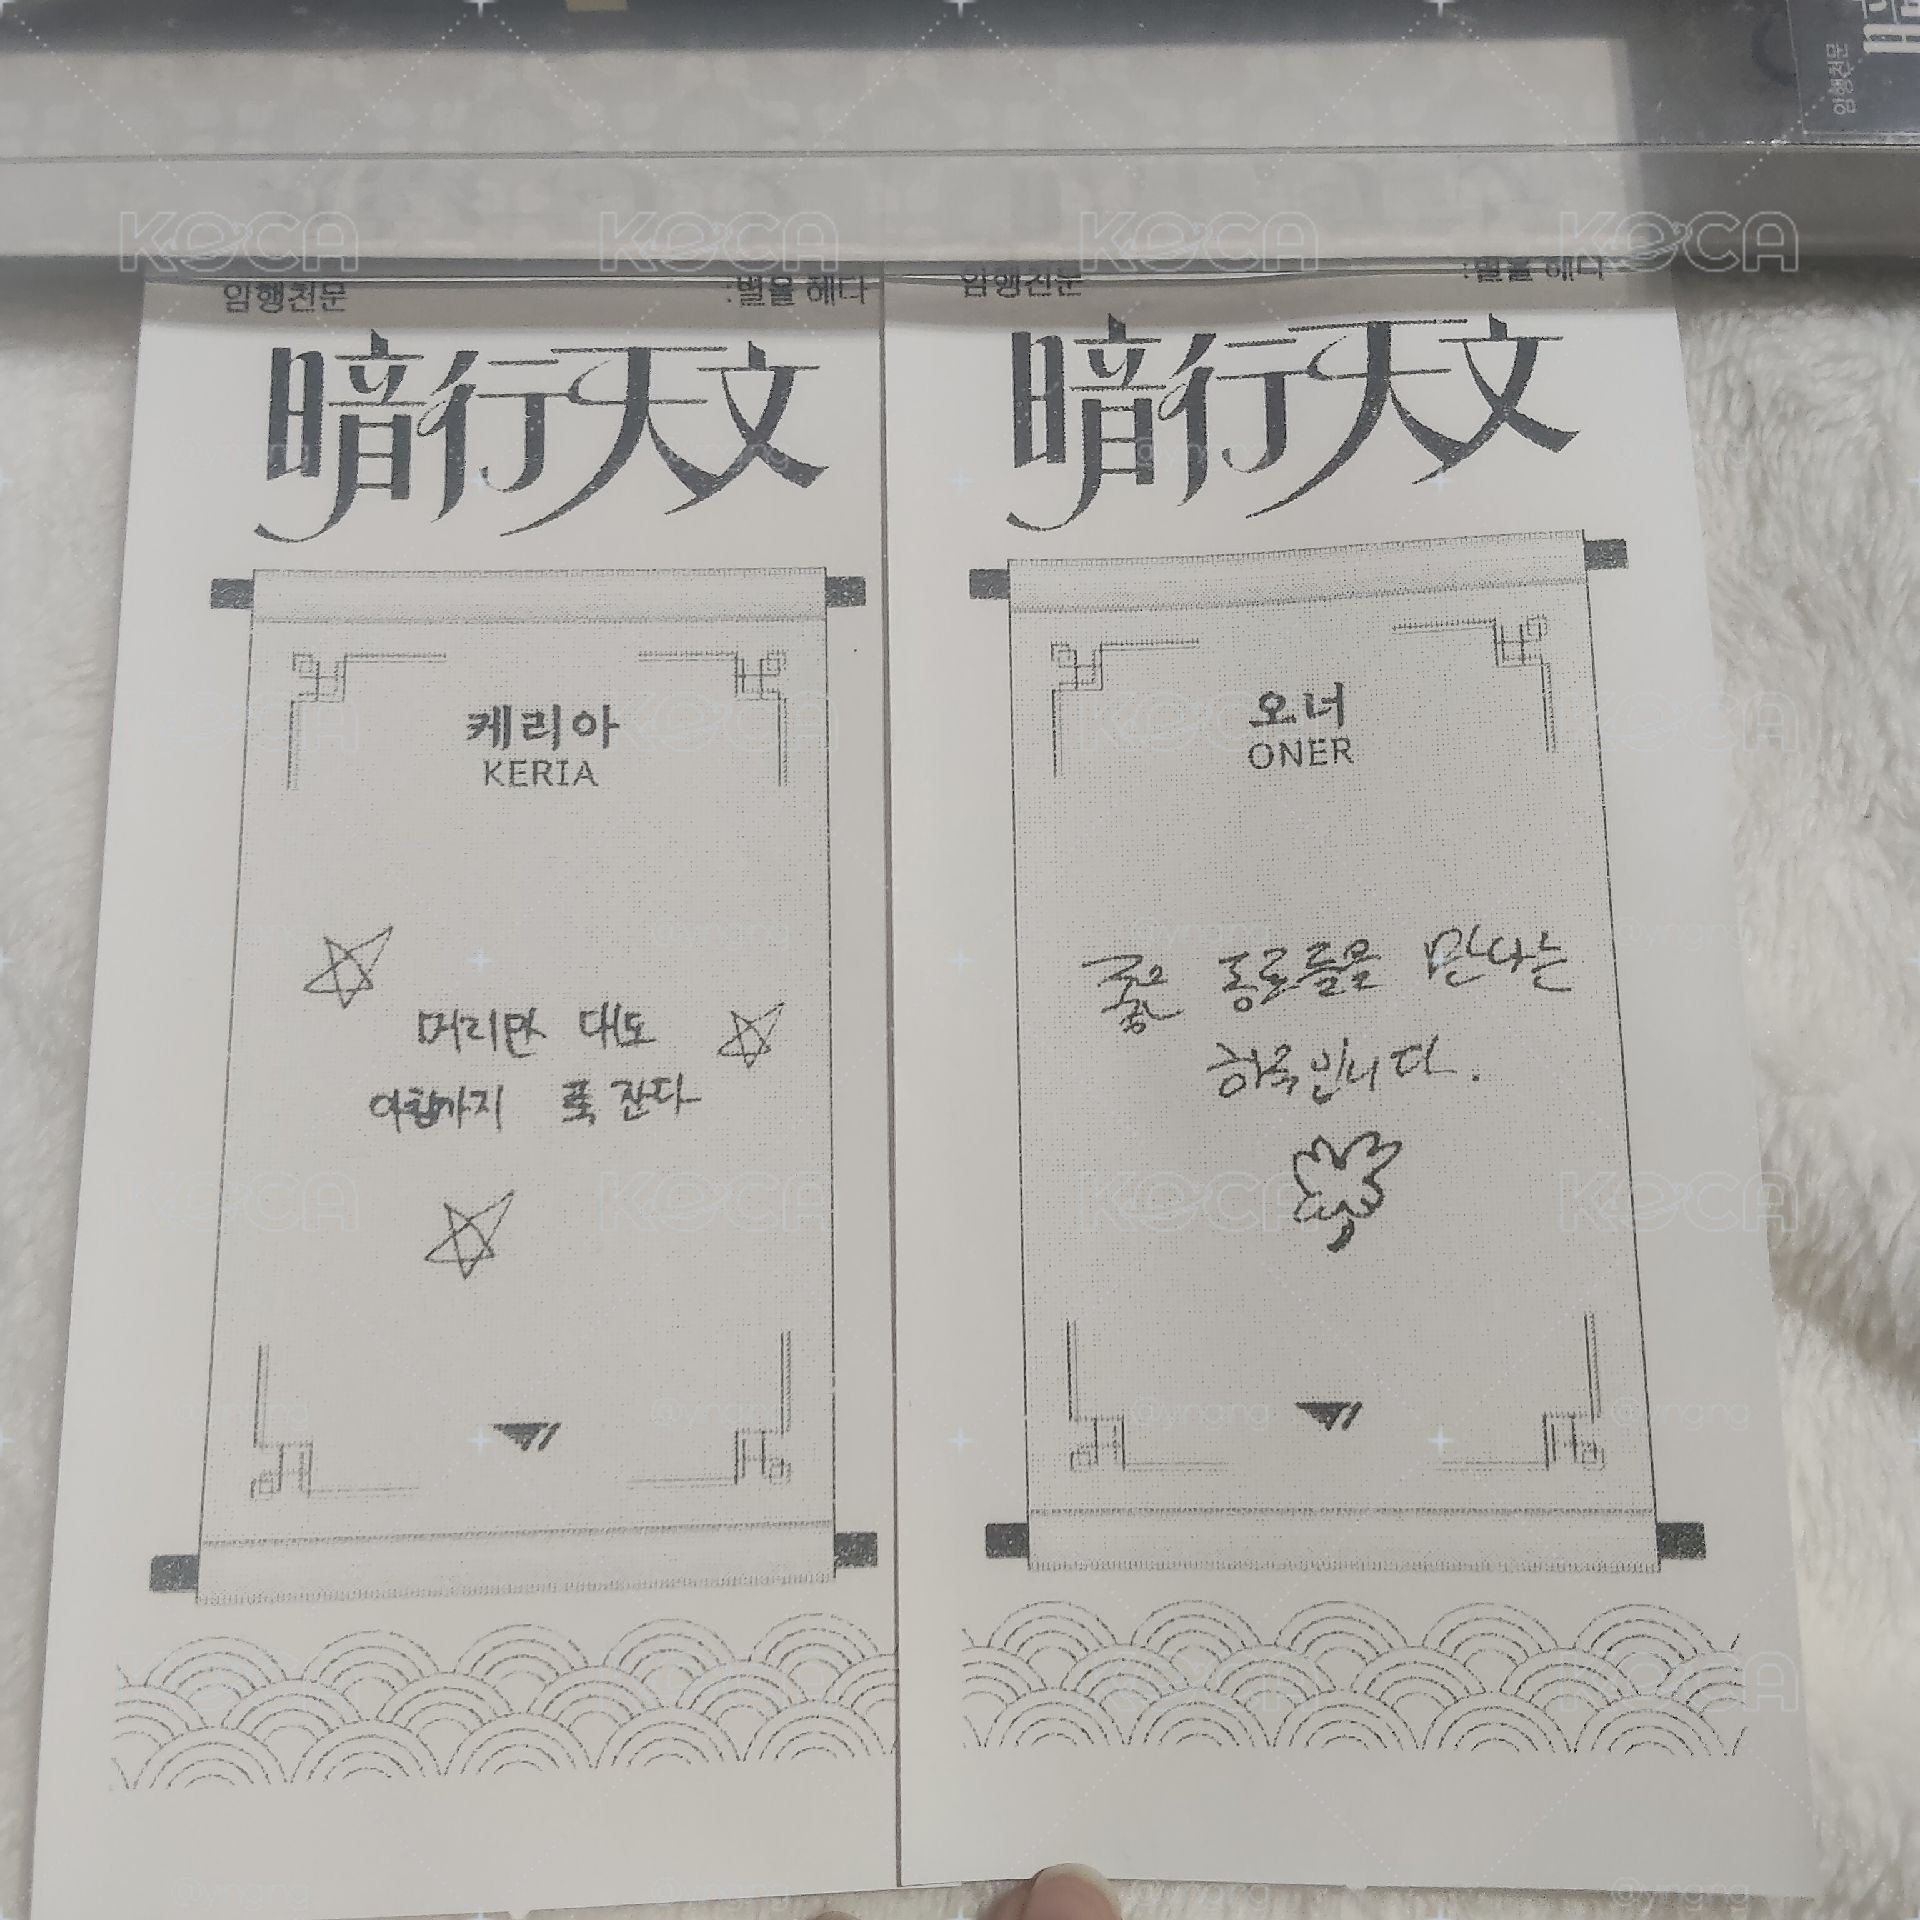 암행천문
암행천문 :별을 헤다
暗行天文
케리아
KERIA
머리만 대도
아침까지 푹 잔다
암행천문 :별을 헤다
暗行天文
오너
ONER
좋은 동료들을 만나는
하루입니다.
KOCA
@yngng